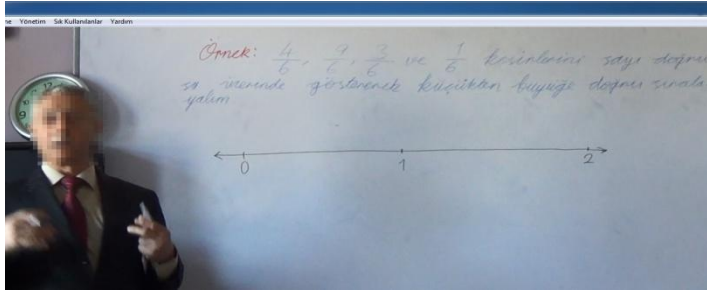 Yönetim Sık Kullanılanlar Yardım
Örnek: 4/6, 9/6, 3/6 ve 1/6 kesirlerini sayı doğru
su üzerinde göstererek küçükten büyüğe doğru sırala
yalım
0 1 2